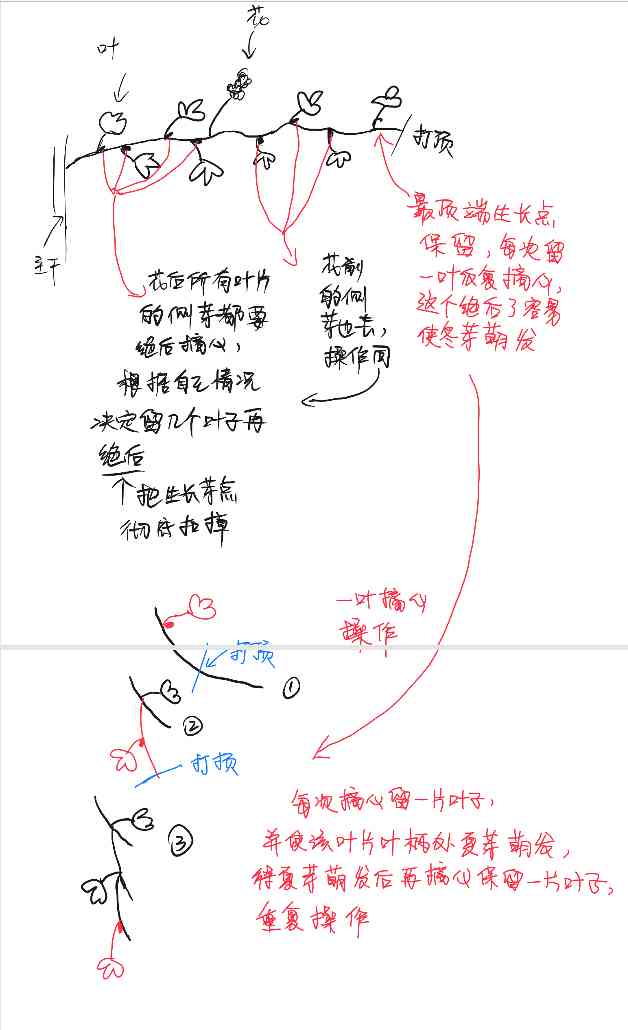 花
叶
打顶
主干
最顶端生长点
保留，每次留
一叶反复摘心，
这个绝后了容易
使冬芽萌发
花后所有叶片
的侧芽都要
绝后摘心，
根据自己情况
决定留几个叶子再
绝后
个把生长芽点
彻底抠掉
花前
的侧
芽也去，
操作同
一叶摘心
操作
打顶
①
②
打顶
③
每次摘心留一片叶子，
并使该叶片叶柄处夏芽萌发，
待夏芽萌发后再摘心保留一片叶子，
重复操作